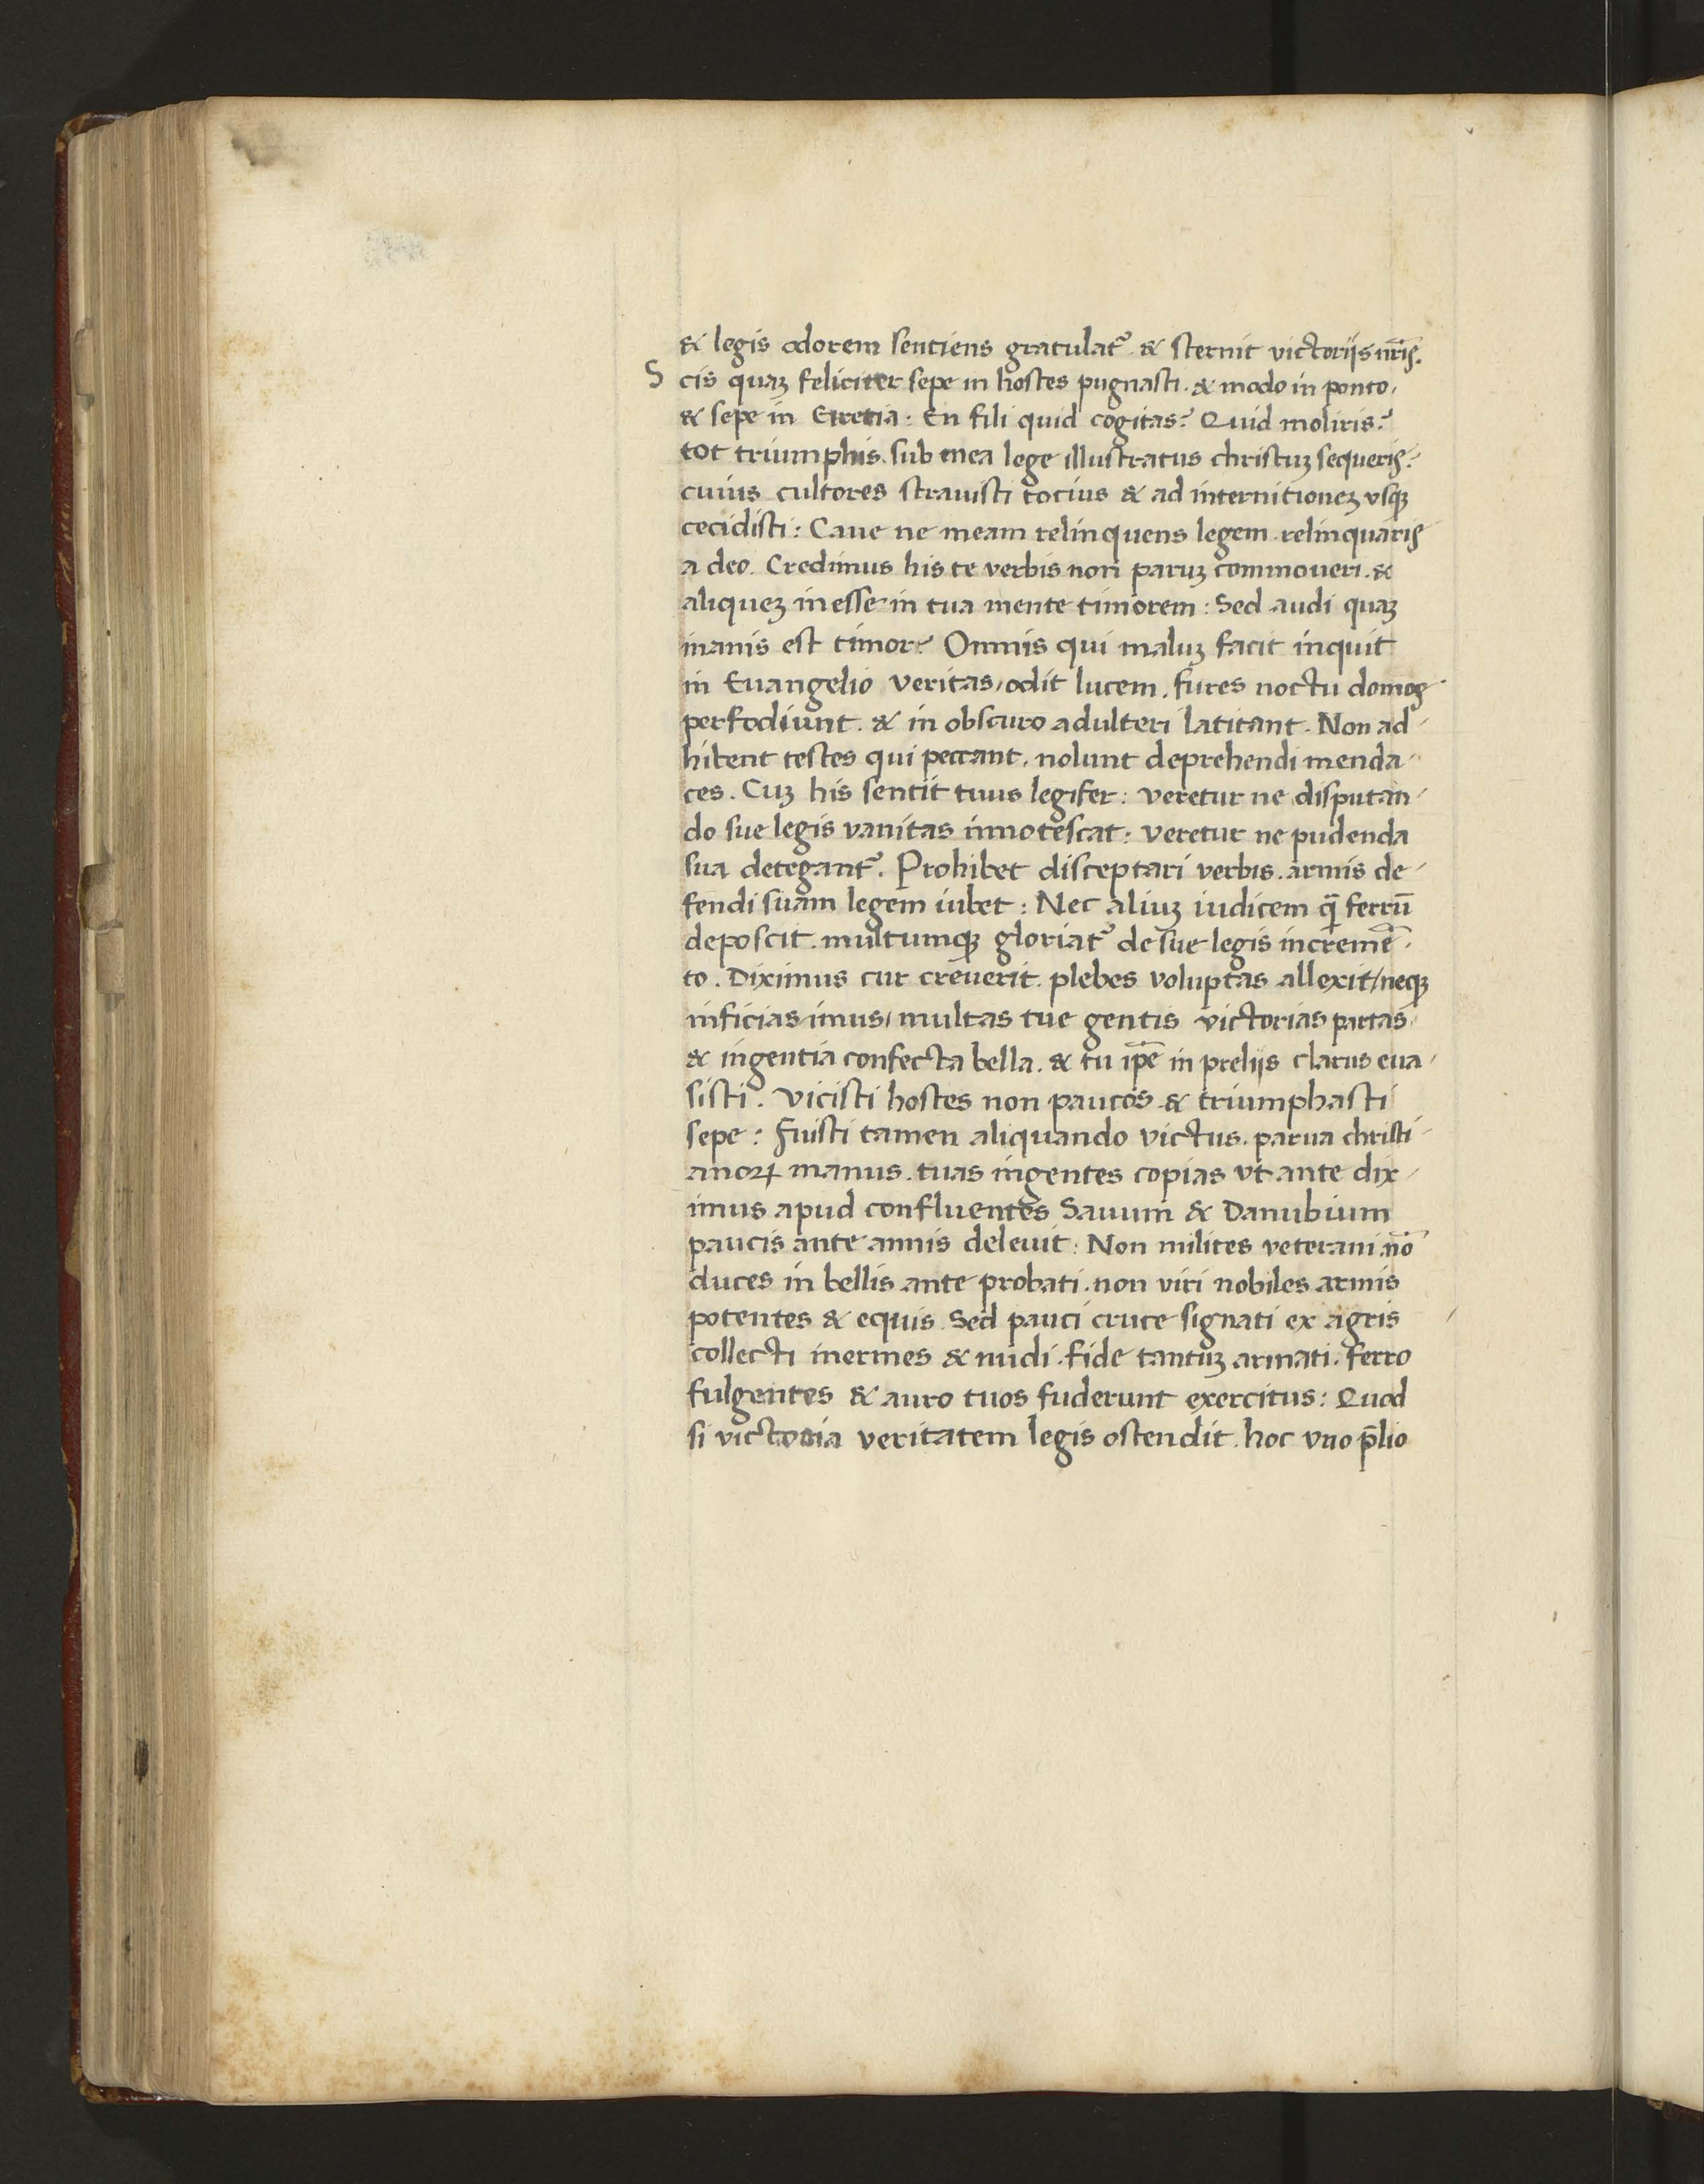 & legis odorem sentiens gratulat᷑ . & sternit victorijs nr̃is.
S cis quaꝫ feliciter sepe in hostes pugnasti . & modo in ponto,
& sepe in Eretria : En fili quid cogitas? Quid moliris?
tot triumphis sub mea lege illustratus christuꝫ sequeris?
cuius cultores strauisti tocius & ad internitioneꝫ vsqꝫ
cecidisti : Caue ne meam relinquens legem relinquaris
a deo. Credimus his te verbis non paruꝫ commoueri . &
aliqueꝫ inesse in tua mente timorem : Sed audi quaꝫ
inanis est timor? Omnis qui maluꝫ facit inquit
in Euangelio veritas, odit lucem . fures noctu domos
perfodiunt . & in obscuro adulteri latitant . Non ad-
hibent testes qui peccant, nolunt deprehendi menda-
ces . Cuꝫ his sentit tuus legifer : veretur ne disputan-
do sue legis vanitas innotescat : veretur ne pudenda
sua detegant᷑ . Prohibet disceptari verbis . armis de-
fendi suam legem iubet : Nec aliuꝫ iudicem q̃ ferrū
deposcit . multumqꝫ gloriat᷑ de sue legis incremē-
to . Diximus cur creuerit . plebes voluptas allexit, neqꝫ
inficias imus, multas tue gentis victorias partas
& ingentia confecta bella . & tu ip̄e in prelijs clarus eua-
sisti . Vicisti hostes non paucos & triumphasti
sepe : Fuisti tamen aliquando victus . parua christi-
anoꝝ manus . tuas ingentes copias vt ante dix-
imus apud confluentes Sauum & Danubium
paucis ante annis deleuit : Non milites veterani . nō
duces in bellis ante probati . non viri nobiles armis
potentes & equis . Sed pauci cruce signati ex agris
collecti inermes & nudi . fide tantuꝫ armati . ferro
fulgentes & auro tuos fuderunt exercitus : Quod
si victoria veritatem legis ostendit . hoc vno p̄lio